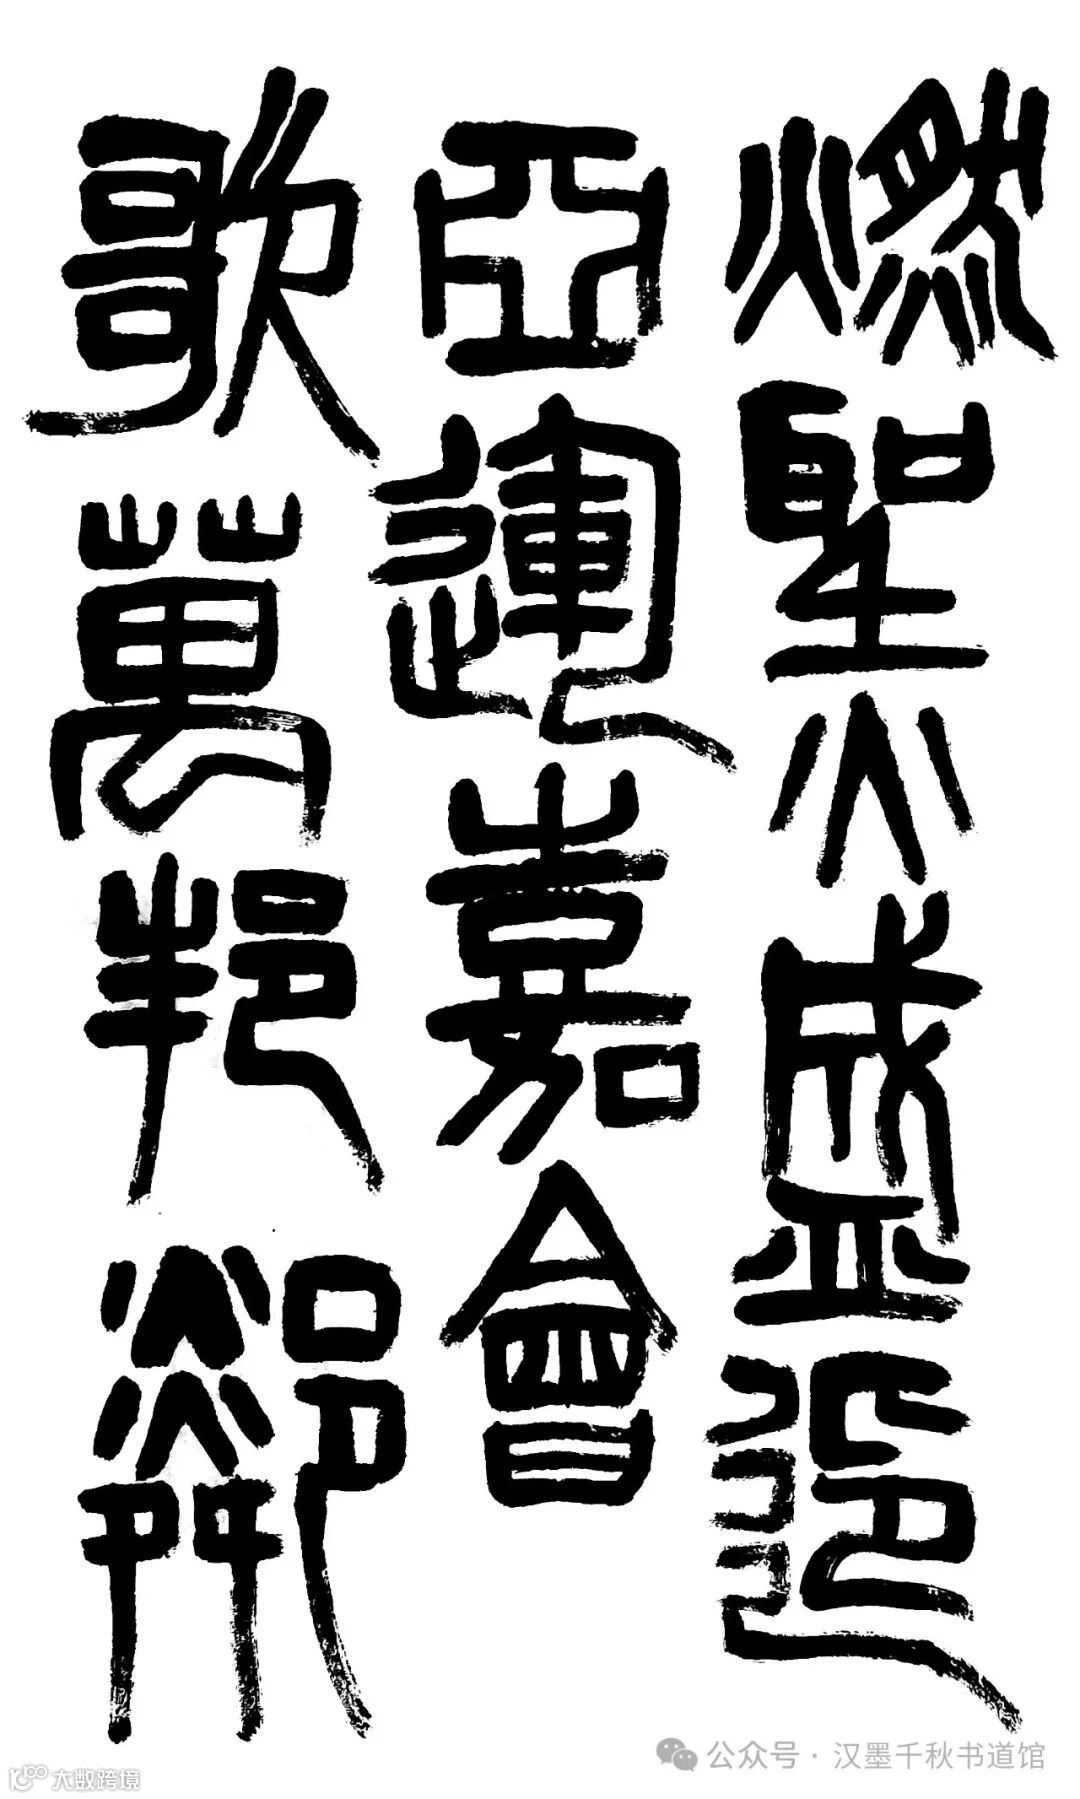 燃聖火盛迎
亞運嘉會
歌萬邦鄰
公众号·汉墨千秋书道馆
大数跨境